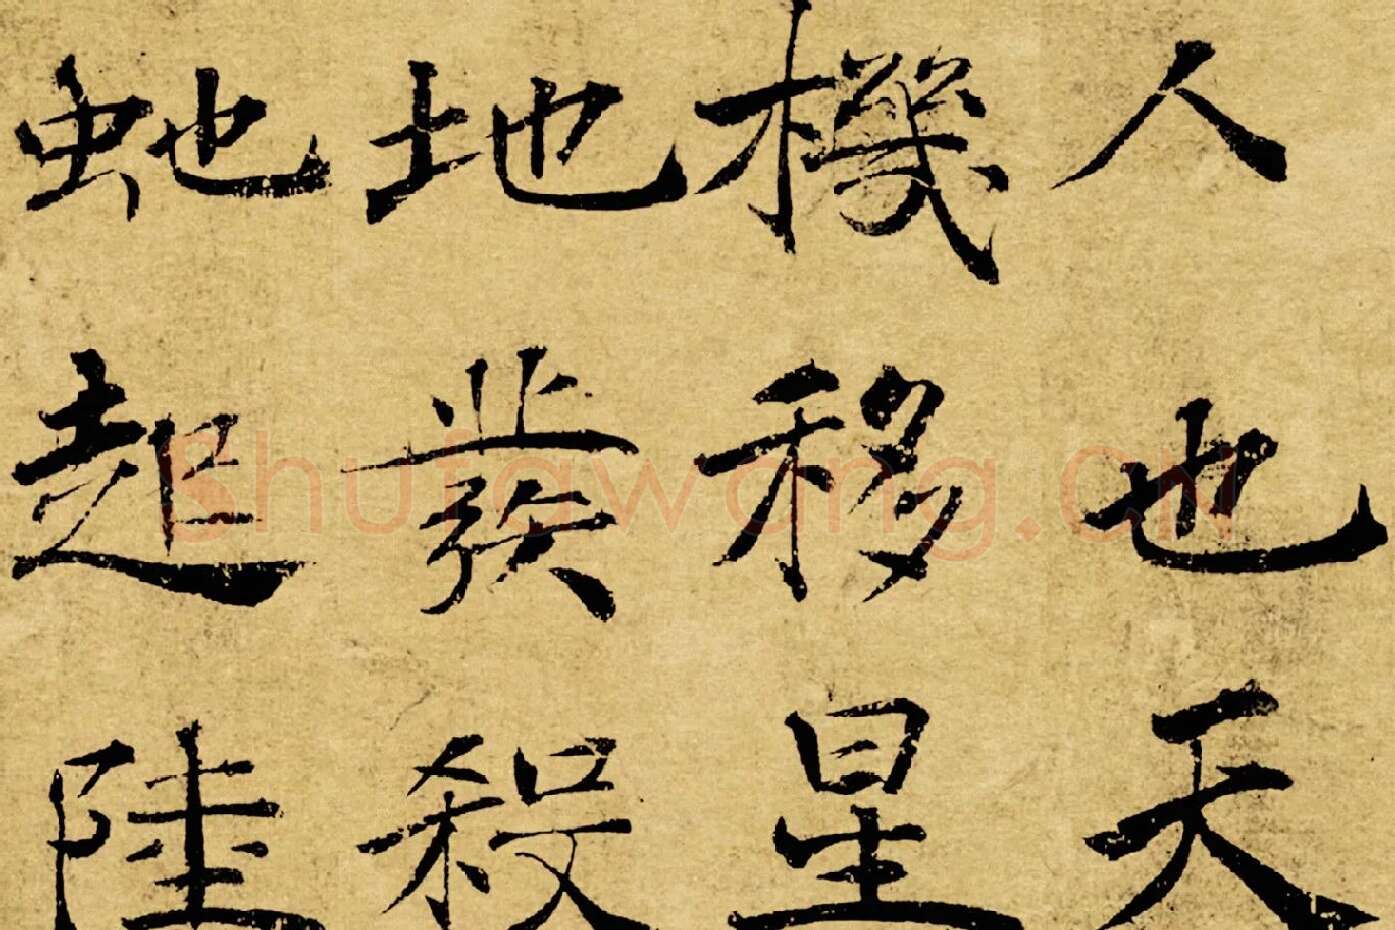 人也天
機移星
地發殺
虵起陸
shufawang.cn